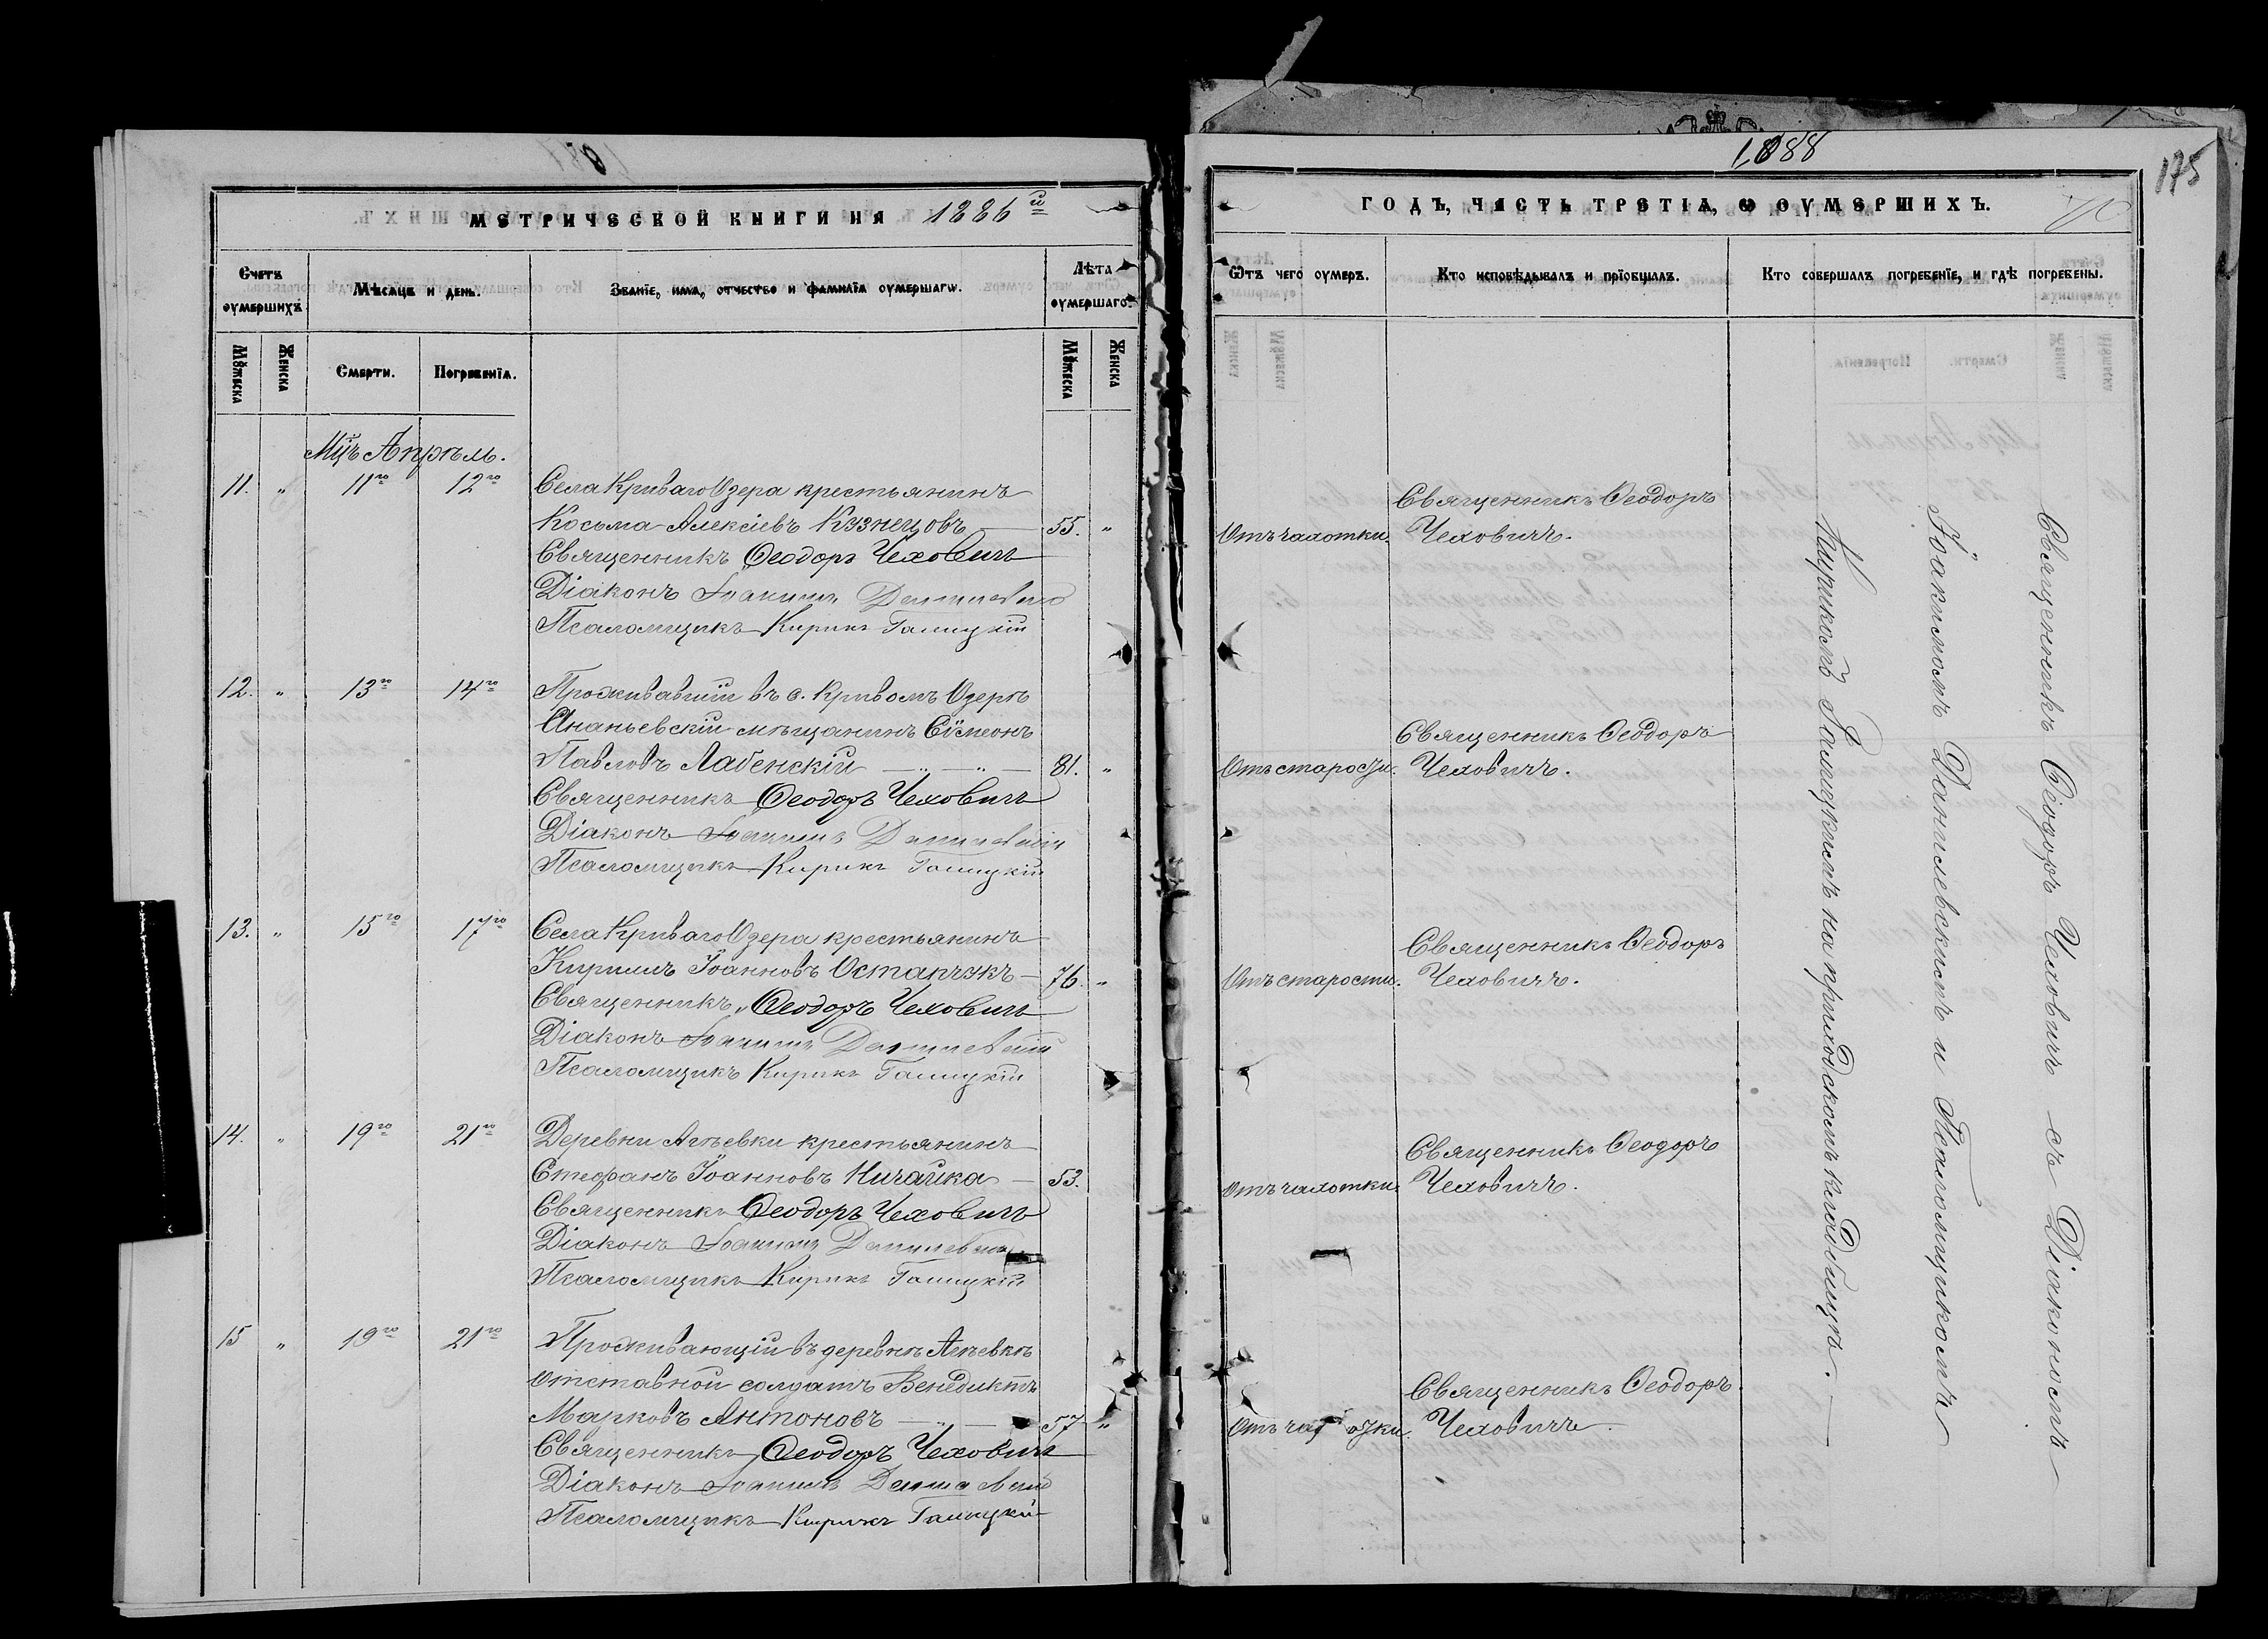 МЕТРИЧЕСКОЙ КНИГИ НА 1886 й
Счетъ оумершихъ.
Мѣсяцъ и день.
Званїе, имя, отчество и фамилїа оумершагѡ.
Лѣта оумершаго.
Мꙋжеска
Женска
Смерти.
Погребенїѧ.
Мꙋжеска
Женска
Мцъ Апрѣль.
11. " 11го 12го Села Криваго Озера крестьянинъ
Косьма Алексіевъ Кузнецовъ — 55. "
Священникъ Ѳеодоръ Чеховичъ
Діаконъ Іоакимъ Данилевскій
Псаломщикъ Кирикъ Галицкій
12. " 13го 14го Проживавшій въ с. Кривомъ Озерѣ
Ананьевскій мѣщанинъ Сѵмеонъ
Павловъ Лабенскій — " — " — 81. "
Священникъ Ѳеодоръ Чеховичъ
Діаконъ Іоакимъ Данилевскій
Псаломщикъ Кирикъ Галицкій
13. " 15го 17го Села Криваго Озера крестьянинъ
Кириллъ Іоанновъ Остапчукъ — 76. "
Священникъ Ѳеодоръ Чеховичъ
Діаконъ Іоакимъ Данилевскій
Псаломщикъ Кирикъ Галицкій
14. " 19го 21го Деревни крестьянинъ
Стефанъ Іоанновъ Ничайка — 53.
Священникъ Ѳеодоръ Чеховичъ
Діаконъ Іоакимъ Данилевскій
Псаломщикъ Кирикъ Галицкій
15 " 19го 21го Проживающій въ деревнѣ
отставной солдатъ Венедиктъ
Марковъ Антоновъ — " — 57 "
Священникъ Ѳеодоръ Чеховичъ
Діаконъ Іоакимъ Данилевскій
Псаломщикъ Кирикъ Галицкій
1888
175
ГОДЪ, ЧАСТЬ ТРЕТІѦ, Ѡ ОУМЕРШИХЪ.
Ѿтъ чего оумеръ.
Кто исповѣдывалъ и прїобщалъ.
Кто совершалъ погребенїе, и гдѣ погребены.
Священникъ Ѳеодоръ
Отъ чахотки. Чеховичъ.
Священникъ Ѳеодоръ
Отъ старости. Чеховичъ.
Священникъ Ѳеодоръ
Отъ старости. Чеховичъ.
Священникъ Ѳеодоръ
Отъ чахотки. Чеховичъ.
Священникъ Ѳеодоръ
Отъ чахотки. Чеховичъ.
Священникъ Ѳеодоръ Чеховичъ съ Діакономъ
Іоакимомъ Данилевскимъ и Псаломщикомъ
Кирикомъ Галицкимъ на приходскомъ кладбищѣ. —